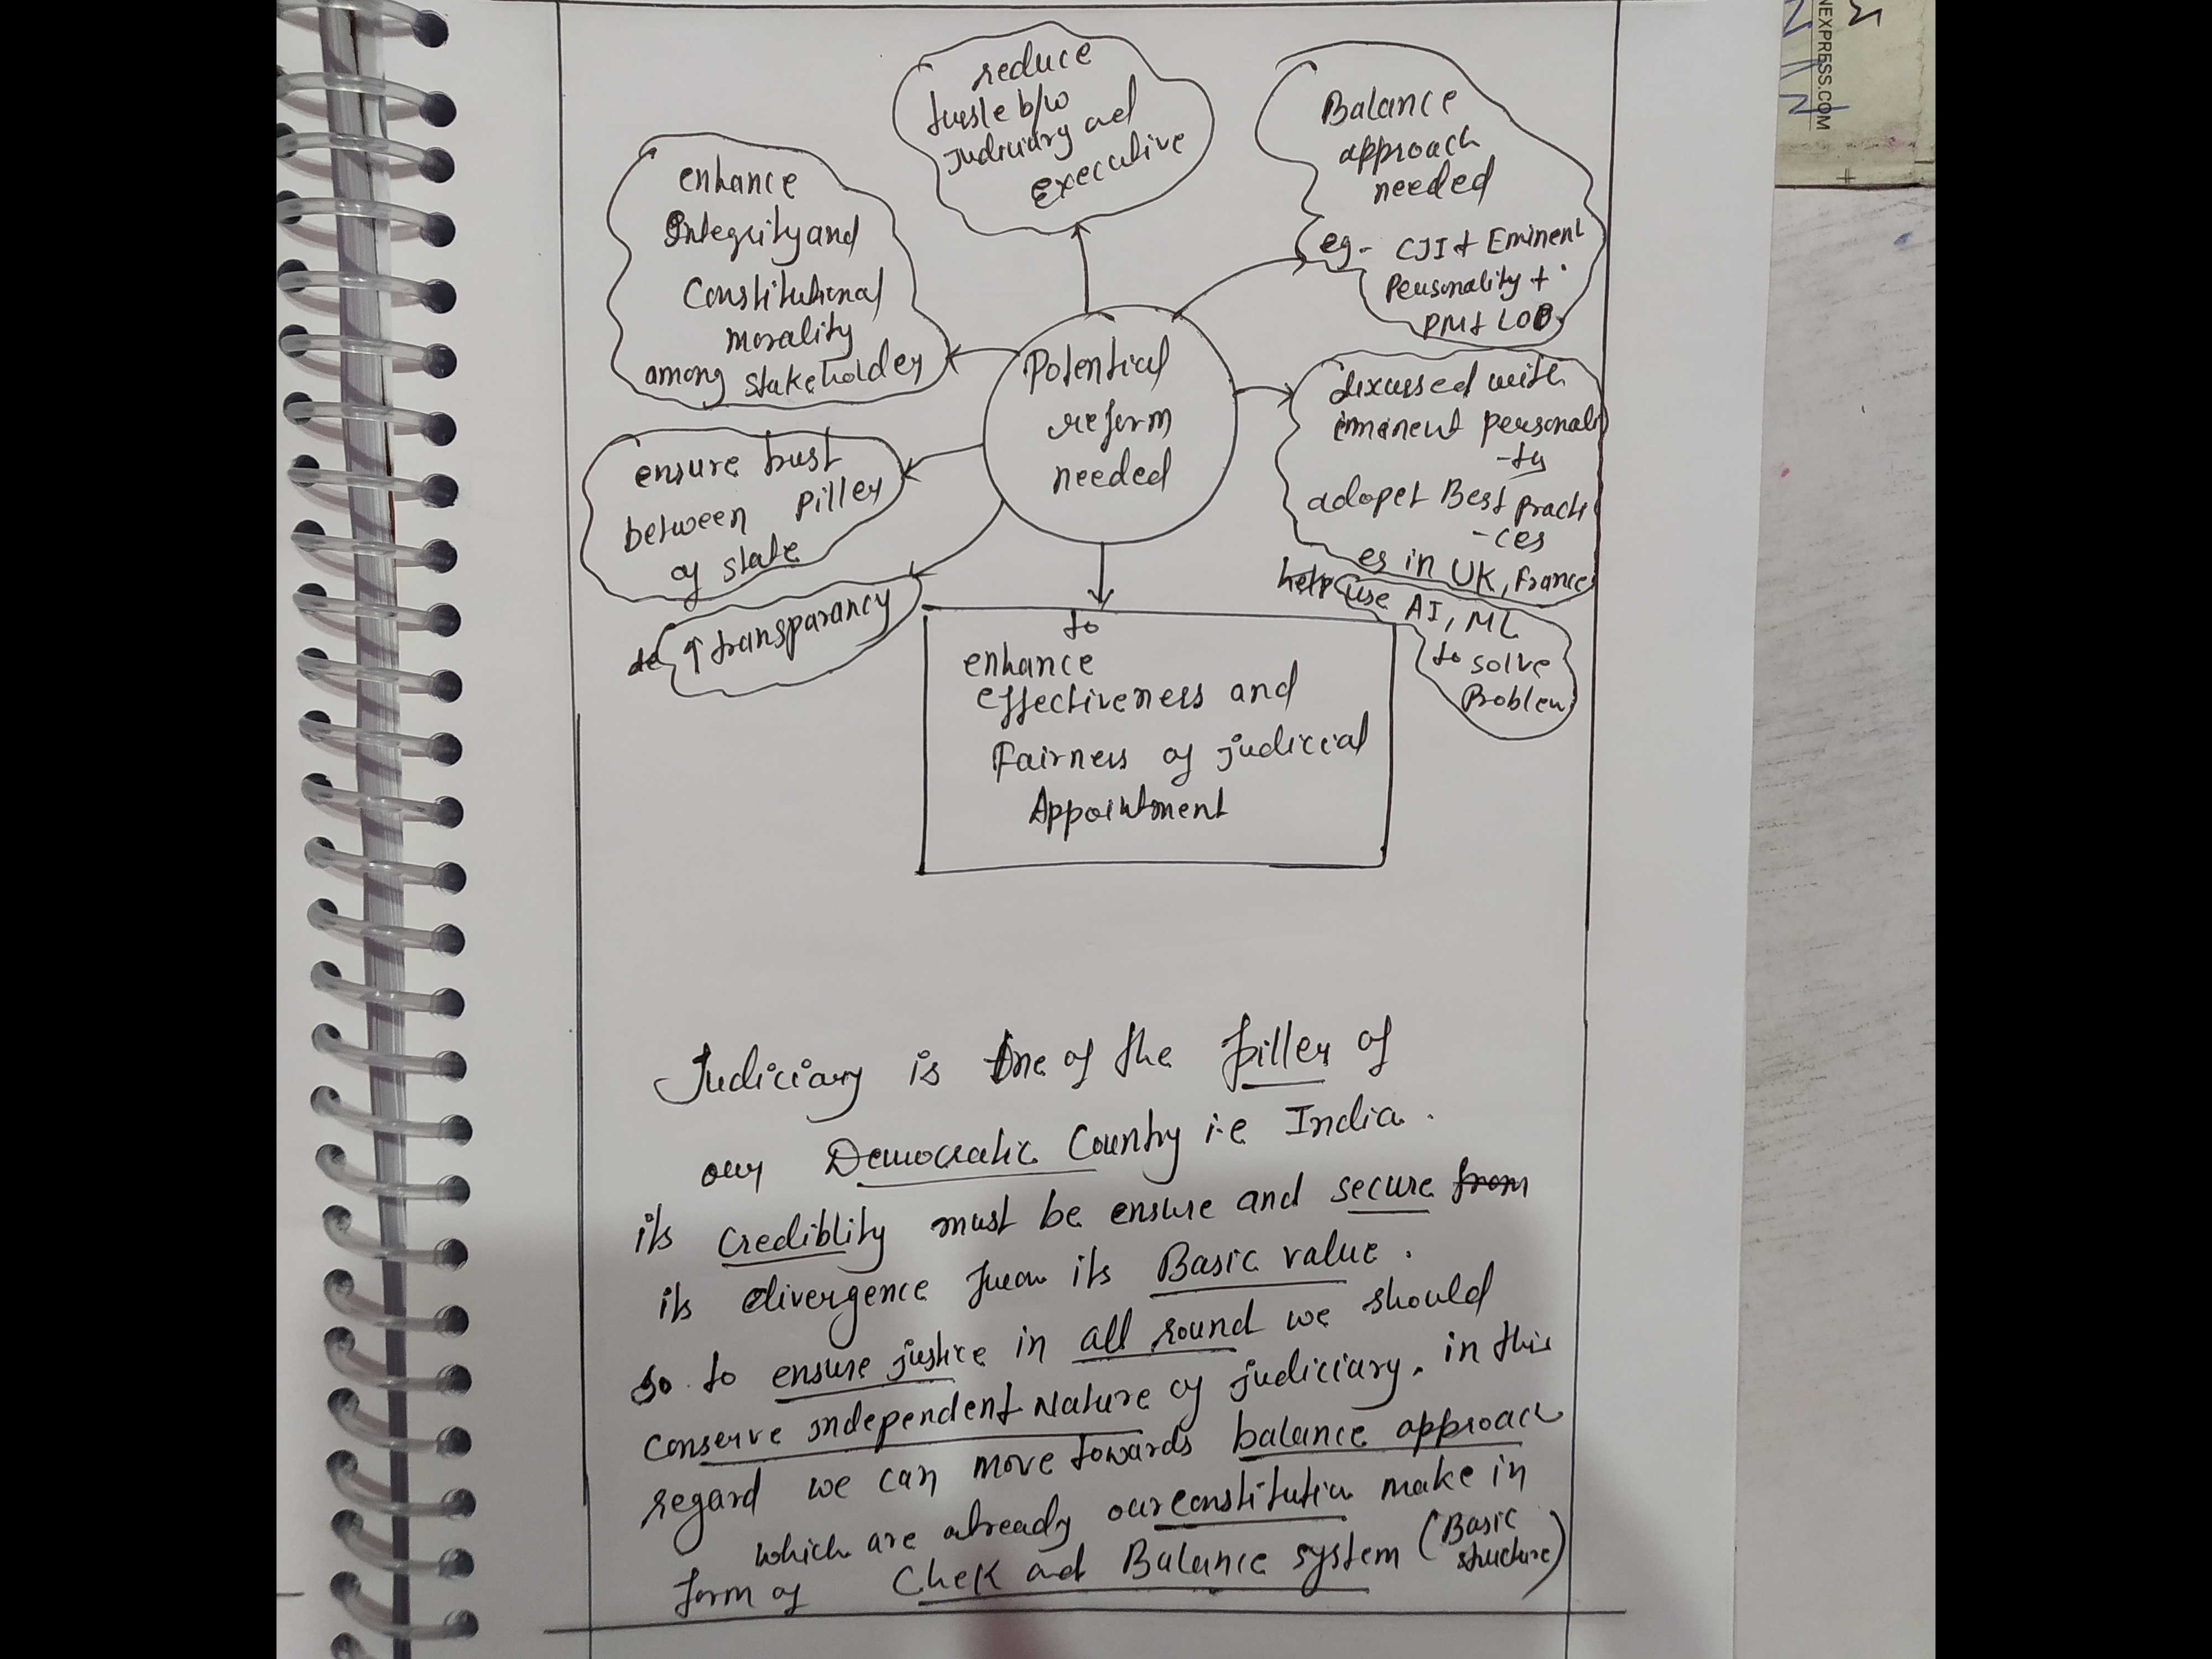 reduce
tussle b/w
judiciary and
executive
Balance
approach
needed
eg- CJI + Eminent
Personality +
PM + LOP
enhance
Integrity and
Constitutional
morality
among stakeholder
Potential
reform
needed
discussed with
eminent personali
-ty
adopet Best practi
-ces
es in UK, France
ensure trust
between piller
of state
↑ transparancy
help use AI, ML
to solve
Problem
to
enhance
effectiveness and
Fairness of judicial
Appointment
Judiciary is one of the piller of
our Democratic Country i.e India.
its crediblity must be ensure and secure from
its divergence from its Basic value.
so to ensure justice in all round we should
conserve independent Nature of judiciary. in this
regard we can move towards balance approach
which are already our constitution make in
form of Chek and Balance system (Basic
structure)
NEXPRESS.COM